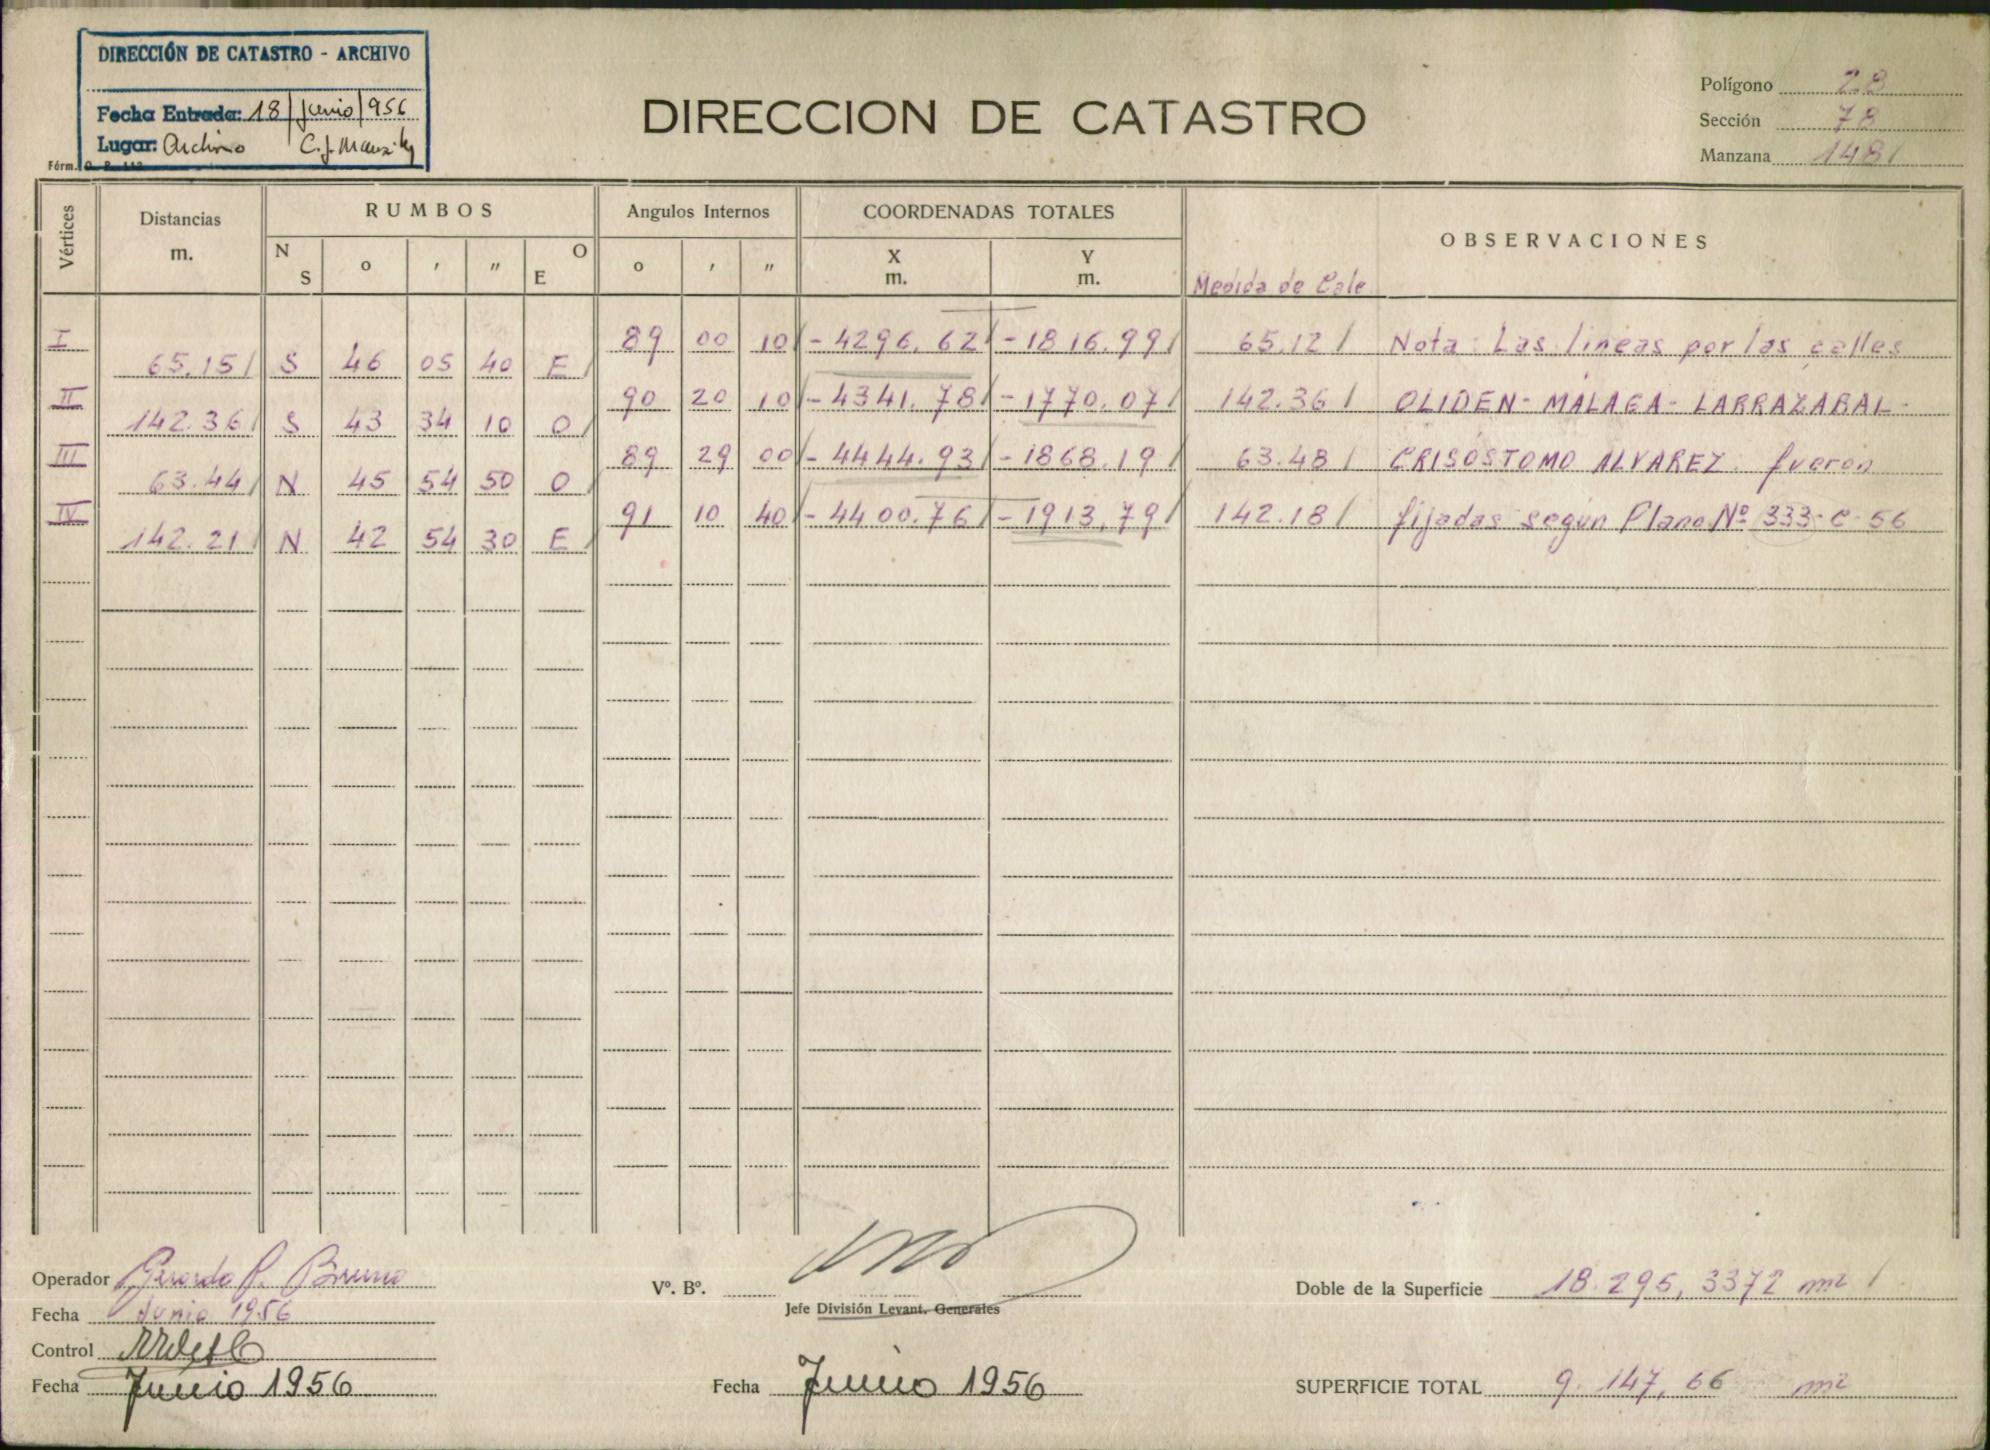 DIRECCIÓN DE CATASTRO - ARCHIVO
Fecha Entrada: 18/Junio/956
Lugar: Archivo
Férm.
DIRECCION DE CATASTRO
Polígono 28
Sección 78
Manzana 148/
Vértices
Distancias m.
RUMBOS
N S ° ' " O E
Angulos Internos
° ' "
COORDENADAS TOTALES
X m. Y m.
Medida de Cale
OBSERVACIONES
I 89 00 10/ -4296.62/ -1816.99/ 65.12/ Nota: Las líneas por las calles
65.15/ S 46 05 40 E/
II 90 20 10/ -4341.78/ -1770.07/ 142.36/ OLIDEN- MÁLAGA- LARRAZABAL-
142.36/ S 43 34 10 O/
III 89 29 00/ -4444.93/ -1868.19/ 63.48/ CRISÓSTOMO ALVAREZ. fueron
63.44/ N 45 54 50 O/
IV 91 10 40/ -4400.76/ -1913.79/ 142.18/ fijadas según Plano Nº 333-C-56
142.21/ N 42 54 30 E/
Operador Gerardo P. Bruno
Fecha Junio 1956
Control
Fecha Junio 1956
Vº. Bº.
Jefe División Levant. Generales
Fecha Junio 1956
Doble de la Superficie 18.295,3372 m2/
SUPERFICIE TOTAL 9.147,66 m2